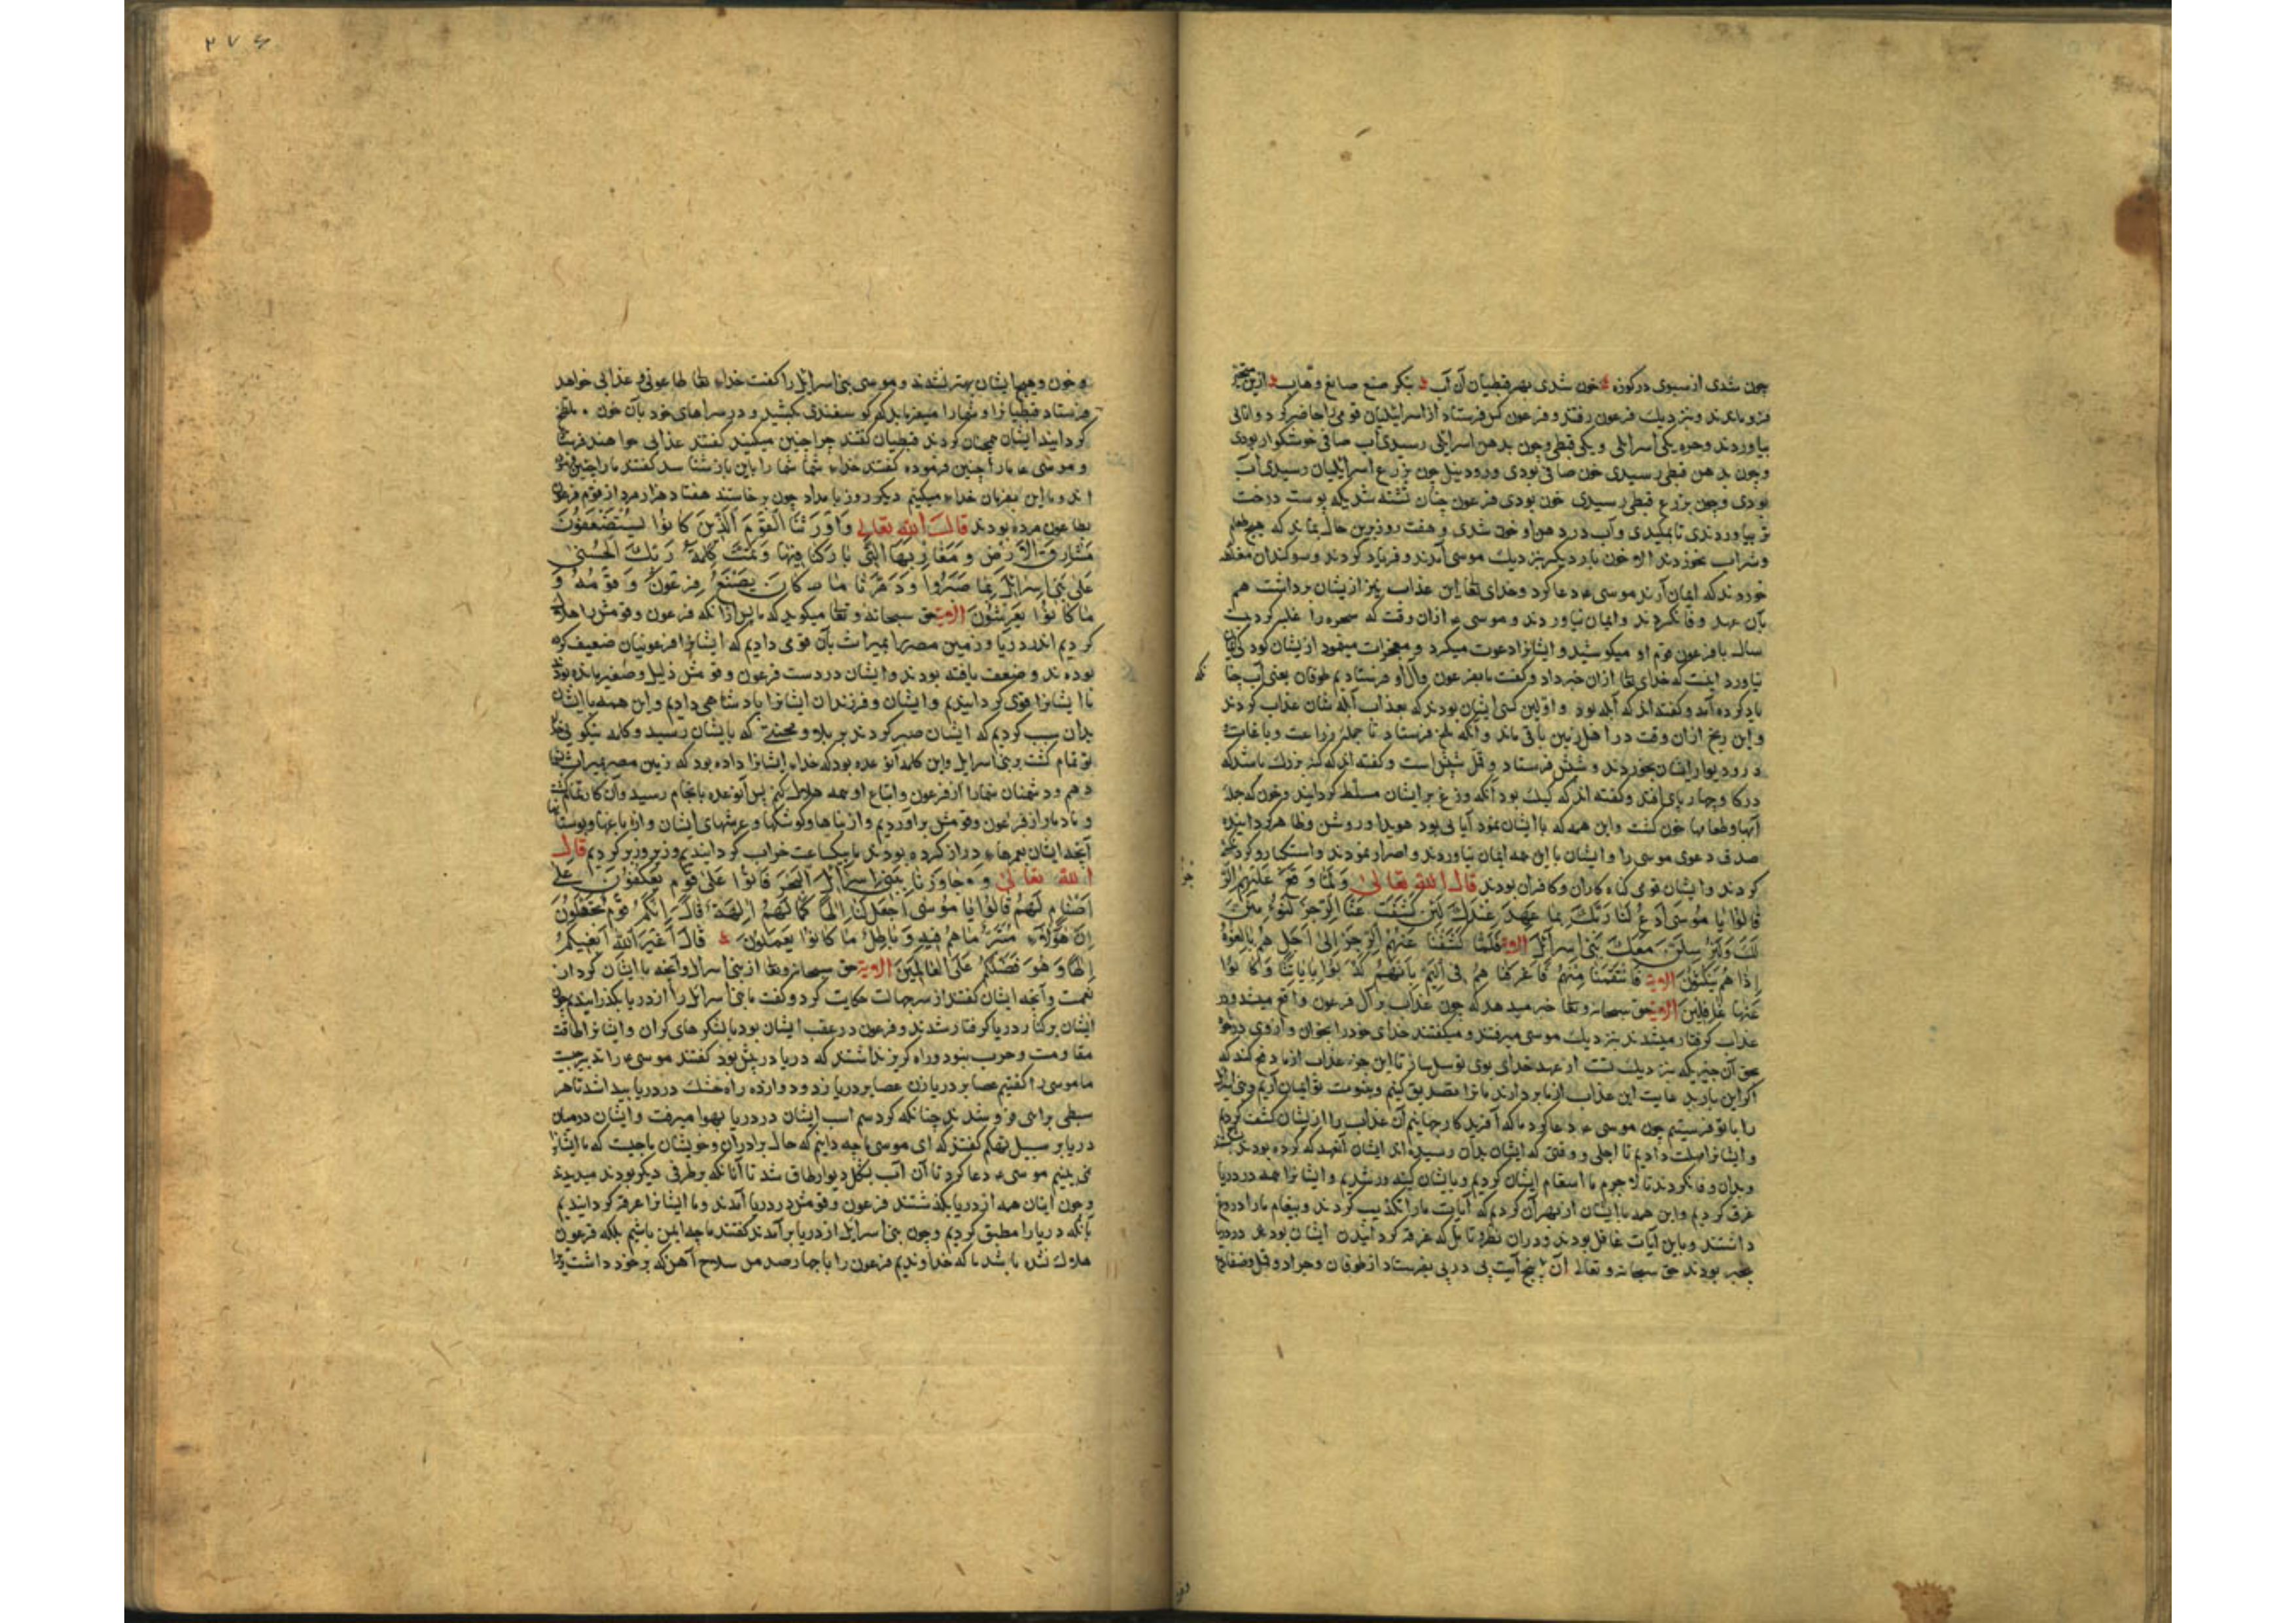 چون شدی از سبوی در کوزه خون شدی بهر قبطیان آن آب بنکر صنع صانع وهاب ازین
فرو ماندند و بنزدیك فرعون رفتند و فرعون کس فرستاد از اسرائیلیان قومی را حاضر کرد و اناثی
بیاوردند و جره یکی اسرائلی و یکی قبطی و چون بدهن اسرائلی رسیدی آب صافی خوشکوار بودی
و چون بدهن قبطی رسیدی خون صافی بودی و رود نیل چون بزرع اسرائلیان رسیدی آب
بودی و چون بزرع قبطی رسیدی خون بودی فرعون چنان تشنه شد که پوست درخت
تر بیاوردندی تا بمکیدی و آب در دهن او خون شدی و هفت روز برین حال بماند که هیچ طعام
و شراب نخوردند الا خون بار دیکر بنزدیك موسی آمدند و فریاد کردند و سوکندان مغلظه
خوردند که ایمان آرند موسی ع دعا کرد و خدای تعا این عذاب نیز ازیشان برداشت هم
بآن عهد وفا نکردند و ایمان نیاوردند و موسی ع ازان وقت که سحره را غلبه کرد بیست
سال با فرعون و قوم او میکوشید و ایشانرا دعوت میکرد و معجزات مینمود ازیشان کس ایمان
نیاورد اینست که خدای تعا ازان خبر داد و کفت ما بفرعون و آل او فرستادیم طوفان یعنی آب چنانکه
یاد کرده آمد و کفته‌اند که آبله بود و اولین کسی ایشان بودند که بعذاب آبله شان عذاب کردند
و این رنج ازان وقت در اهل زمین باقی ماند و آنکه ملخ فرستاد تا جمله زراعت و باغات
و در و دیوار ایشان بخوردند و شپش فرستاد و قمل شپش است و کفته‌اند که کنه بزرك باشد که
در کاو و چهارپای افتد و کفته اند که کیك بود آنکه وزغ بر ایشان مسلط کردانید و خون که جمله
آبها و طعامها خون کشت و این همه که با ایشان نمود آیاتی بود هویدا و روشن و ظاهر کرداننده
صدق دعوی موسی را و ایشان با این همه ایمان نیاوردند و اصرار نمودند و استکبار و کردنکشی
کردند و ایشان قومی کناه کاران و کافران بودند قال الله تعالی وَلَمَّا وَقَعَ عَلَيْهِمُ الرِّجْزُ
قَالُوا يَا مُوسَى ادْعُ لَنَا رَبَّكَ بِمَا عَهِدَ عِنْدَكَ لَئِنْ كَشَفْتَ عَنَّا الرِّجْزَ لَنُؤْمِنَنَّ
لَكَ وَلَنُرْسِلَنَّ مَعَكَ بَنِي إِسْرَائِلَ الآیة فَلَمَّا كَشَفْنَا عَنْهُمُ الرِّجْزَ إِلَى أَجَلٍ هُمْ بَالِغُوهُ
إِذَا هُمْ يَنْكُثُونَ الآیة فَانْتَقَمْنَا مِنْهُمْ فَأَغْرَقْنَاهُمْ فِي الْيَمِّ بِأَنَّهُمْ كَذَّبُوا بِآيَاتِنَا وَكَانُوا
عَنْهَا غَافِلِينَ الآیة حق سبحانه و تعا خبر میدهد که چون عذاب بر آل فرعون واقع میشد و در
عذاب کرفتار میشدند بنزدیك موسی میرفتند و میکفتند خدای خود را بخوان و ازوی درخواه
بحق آن چیزی که بنزدیك تست از عهد خدای بوی توسل ساز تا این جزء عذاب از ما دفع کند که
اکر این بار بدعایت این عذاب از ما بردارند ما ترا تصدیق کنیم و بنبوت تو ایمان آریم و بنی اسرائیل
را با تو فرستیم چون موسی ع دعا کرد ما که آفریدکار جهانیم آن عذاب را ازیشان کشف کردیم
و ایشانرا مهلت دادیم تا اجلی و وقتی که ایشان بدان رسیده اند ایشان آنعهد که کرده بودند بشکستند
و بدان وفا نکردند تا لاجرم ما انتقام ایشان کردیم و بایشان کینه ورشدیم و ایشانرا همه در دریا
غرق کردیم و این همه با ایشان از بهر آن کردیم که آیات ما را تکذیب کردند و پیغام ما را دروغ
داشتند و باین آیات غافل بودند و دران نظر و تامل که غرقه کردانیدن ایشان بود در دریا
بیخبر بودند حق سبحانه و تعالی آن پنج آیت پی در پی بفرستاد از طوفان و جراد و قمل و ضفادع
۲۷۶
و خون و هیچ ایشان بهتر نشدند و موسی بنی اسرائیل را کفت خدای تعا طاعونی و عذابی خواهد
فرستاد قبطیانرا و شما را میفرماید که کوسفندی بکشید و در سراهای خود بآن خون ملطخ
کردانید ایشان همچنان کردند قبطیان کفتند چرا چنین میکنید کفتند عذابی خواهند فرستاد
و موسی ع ما را چنین فرموده کفتند خدای شما شما را باین باز شناسد کفتند ما را چنین فرموده
اند و ما این بفرمان خدای میکنیم دیکر روز بامداد چون برخاستند هفتاد هزار مرد از قوم فرعون
بطاعون مرده بودند قال الله تعالی وَأَوْرَثْنَا الْقَوْمَ الَّذِينَ كَانُوا يُسْتَضْعَفُونَ
مَشَارِقَ الْأَرْضِ وَمَغَارِبَهَا الَّتِي بَارَكْنَا فِيهَا وَتَمَّتْ كَلِمَةُ رَبِّكَ الْحُسْنَى
عَلَى بَنِي إِسْرَائِلَ بِمَا صَبَرُوا وَدَمَّرْنَا مَا كَانَ يَصْنَعُ فِرْعَوْنُ وَقَوْمُهُ وَ
مَا كَانُوا يَعْرِشُونَ الآیة حق سبحانه و تعا میکوید که ما پس ازانکه فرعون و قومش را هلاك
کردیم اندر دریا و زمین مصر را بمیراث بآن قومی دادیم که ایشانرا فرعونیان ضعیف کرده
بودند و ضعف یافته بودند و ایشان در دست فرعون و قومش ذلیل و صغیر مانده بودند
ما ایشانرا قوی کردانیدیم و ایشان و فرزندان ایشانرا پادشاهی دادیم و این همه با ایشان
بدان سبب کردیم که ایشان صبر کردند بر بلا و محنتی که بایشان رسید و کلمه نیکویی خدای
تو تمام کشت و بنی اسرایل و این کلمه آنوعده بود که خدای ایشانرا داده بود که زمین مصر بمیراث بشما
دهم و دشمنان شما را از فرعون و اتباع او همه هلاك کنم پس آنوعده بانجام رسید و آن کار تمام کشت
و ما دمار از فرعون و قومش برآوردیم و از بناها و کوشکها و عرشهای ایشان و از باغها و بوستانها
آنچه ایشان بعمرهای دراز کرده بودند ما بیکساعت خراب کردانیدیم و زیر و زبر کردیم قال
الله تعالی وَجَاوَزْنَا بِبَنِي إِسْرَائِلَ الْبَحْرَ فَأَتَوْا عَلَى قَوْمٍ يَعْكُفُونَ عَلَى
أَصْنَامٍ لَهُمْ قَالُوا يَا مُوسَى اجْعَلْ لَنَا إِلَهًا كَمَا لَهُمْ آلِهَةٌ قَالَ إِنَّكُمْ قَوْمٌ تَجْهَلُونَ
إِنَّ هَؤُلَاءِ مُتَبَّرٌ مَا هُمْ فِيهِ وَبَاطِلٌ مَا كَانُوا يَعْمَلُونَ قَالَ أَغَيْرَ اللَّهِ أَبْغِيكُمْ
إِلَهًا وَهُوَ فَضَّلَكُمْ عَلَى الْعَالَمِينَ الآیة حق سبحانه و تعا از بنی اسرایل و آنچه با ایشان کرد از
نعمت و آنچه ایشان کفتند از سر جهالت حکایت کرد و کفت ما بنی اسرائل را از دریا بکذرانیدیم چون
ایشان بر کنار دریا کرفتار شدند و فرعون در عقب ایشان بود با لشکرهای کران و ایشانرا طاقت
مقاومت و حرب نبود و راه کریز نداشتند که دریا در پیش بود کفتند موسی ع را تدبیر چیست
ما موسی را کفتیم عصا بر دریا زن عصا بر دریا زد و دوازده راه خشك در دریا پیدا شد تا هر
سبطی براهی فرو شدند چنانکه کرد سم اسب ایشان در دریا بهوا میرفت و ایشان در میان
دریا بر سبیل تهکم کفتند که ای موسی ما چه دانیم که حال برادران و خویشان ما چیست که ما ایشانرا
نمی بینیم موسی ع دعا کرد تا آن آب بشکل دیوار طاق شد تا آنانکه بر طرفی دیکر بودند میدیدند
و چون اینان همه از دریا بکذشتند فرعون و قومش در دریا آمدند و ما ایشانرا غرقه کردانیدیم
بآنکه دریا را مطبق کردیم و چون بنی اسرائل از دریا برآمدند کفتند ما چه ایمن باشیم بلکه فرعون
هلاك نشده باشد ما که خداوندیم فرعون را با چهارصد من سلاح آهن که بر خود داشت